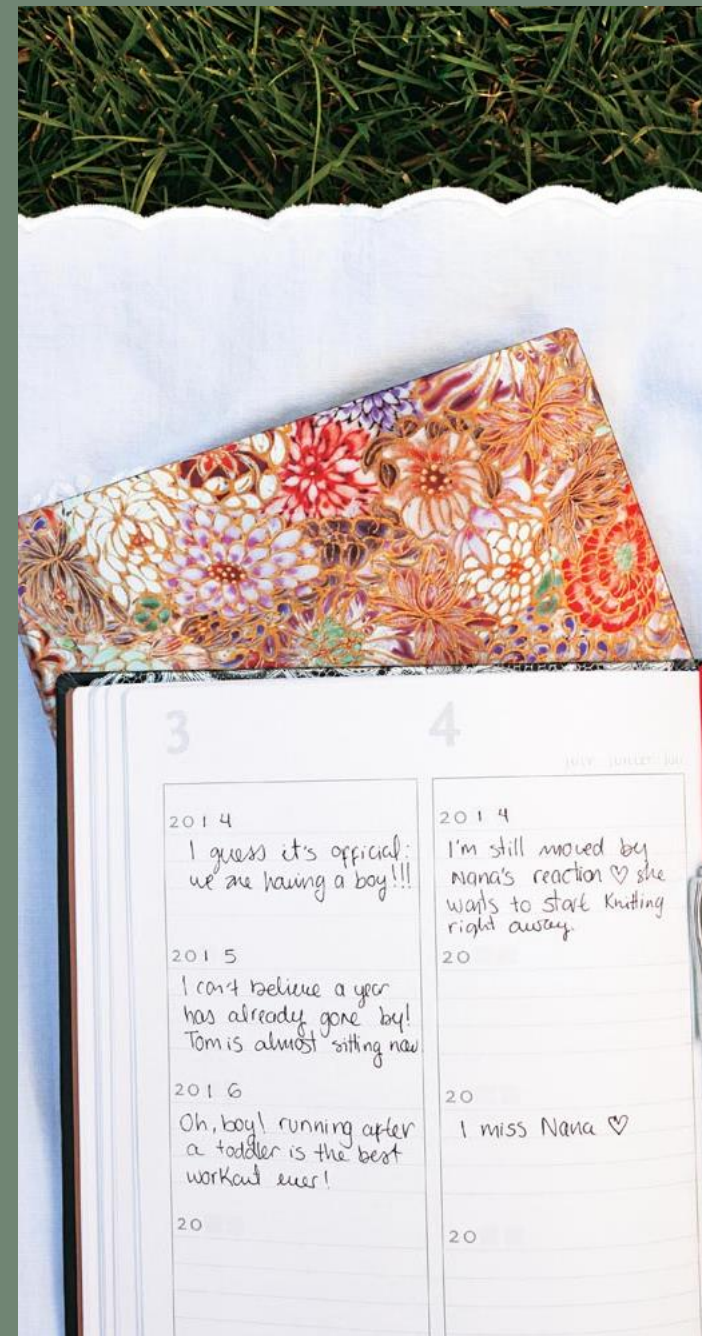 3
4
JULY JUILLET JULI
2014
I guess it's official:
we are having a boy!!!
2015
I can't believe a year
has already gone by!
Tom is almost sitting now
2016
Oh, boy! running after
a toddler is the best
workout ever!
20
2014
I'm still moved by
Nana's reaction ♡ she
wants to start Knitting
right away.
20
20
I miss Nana ♡
20